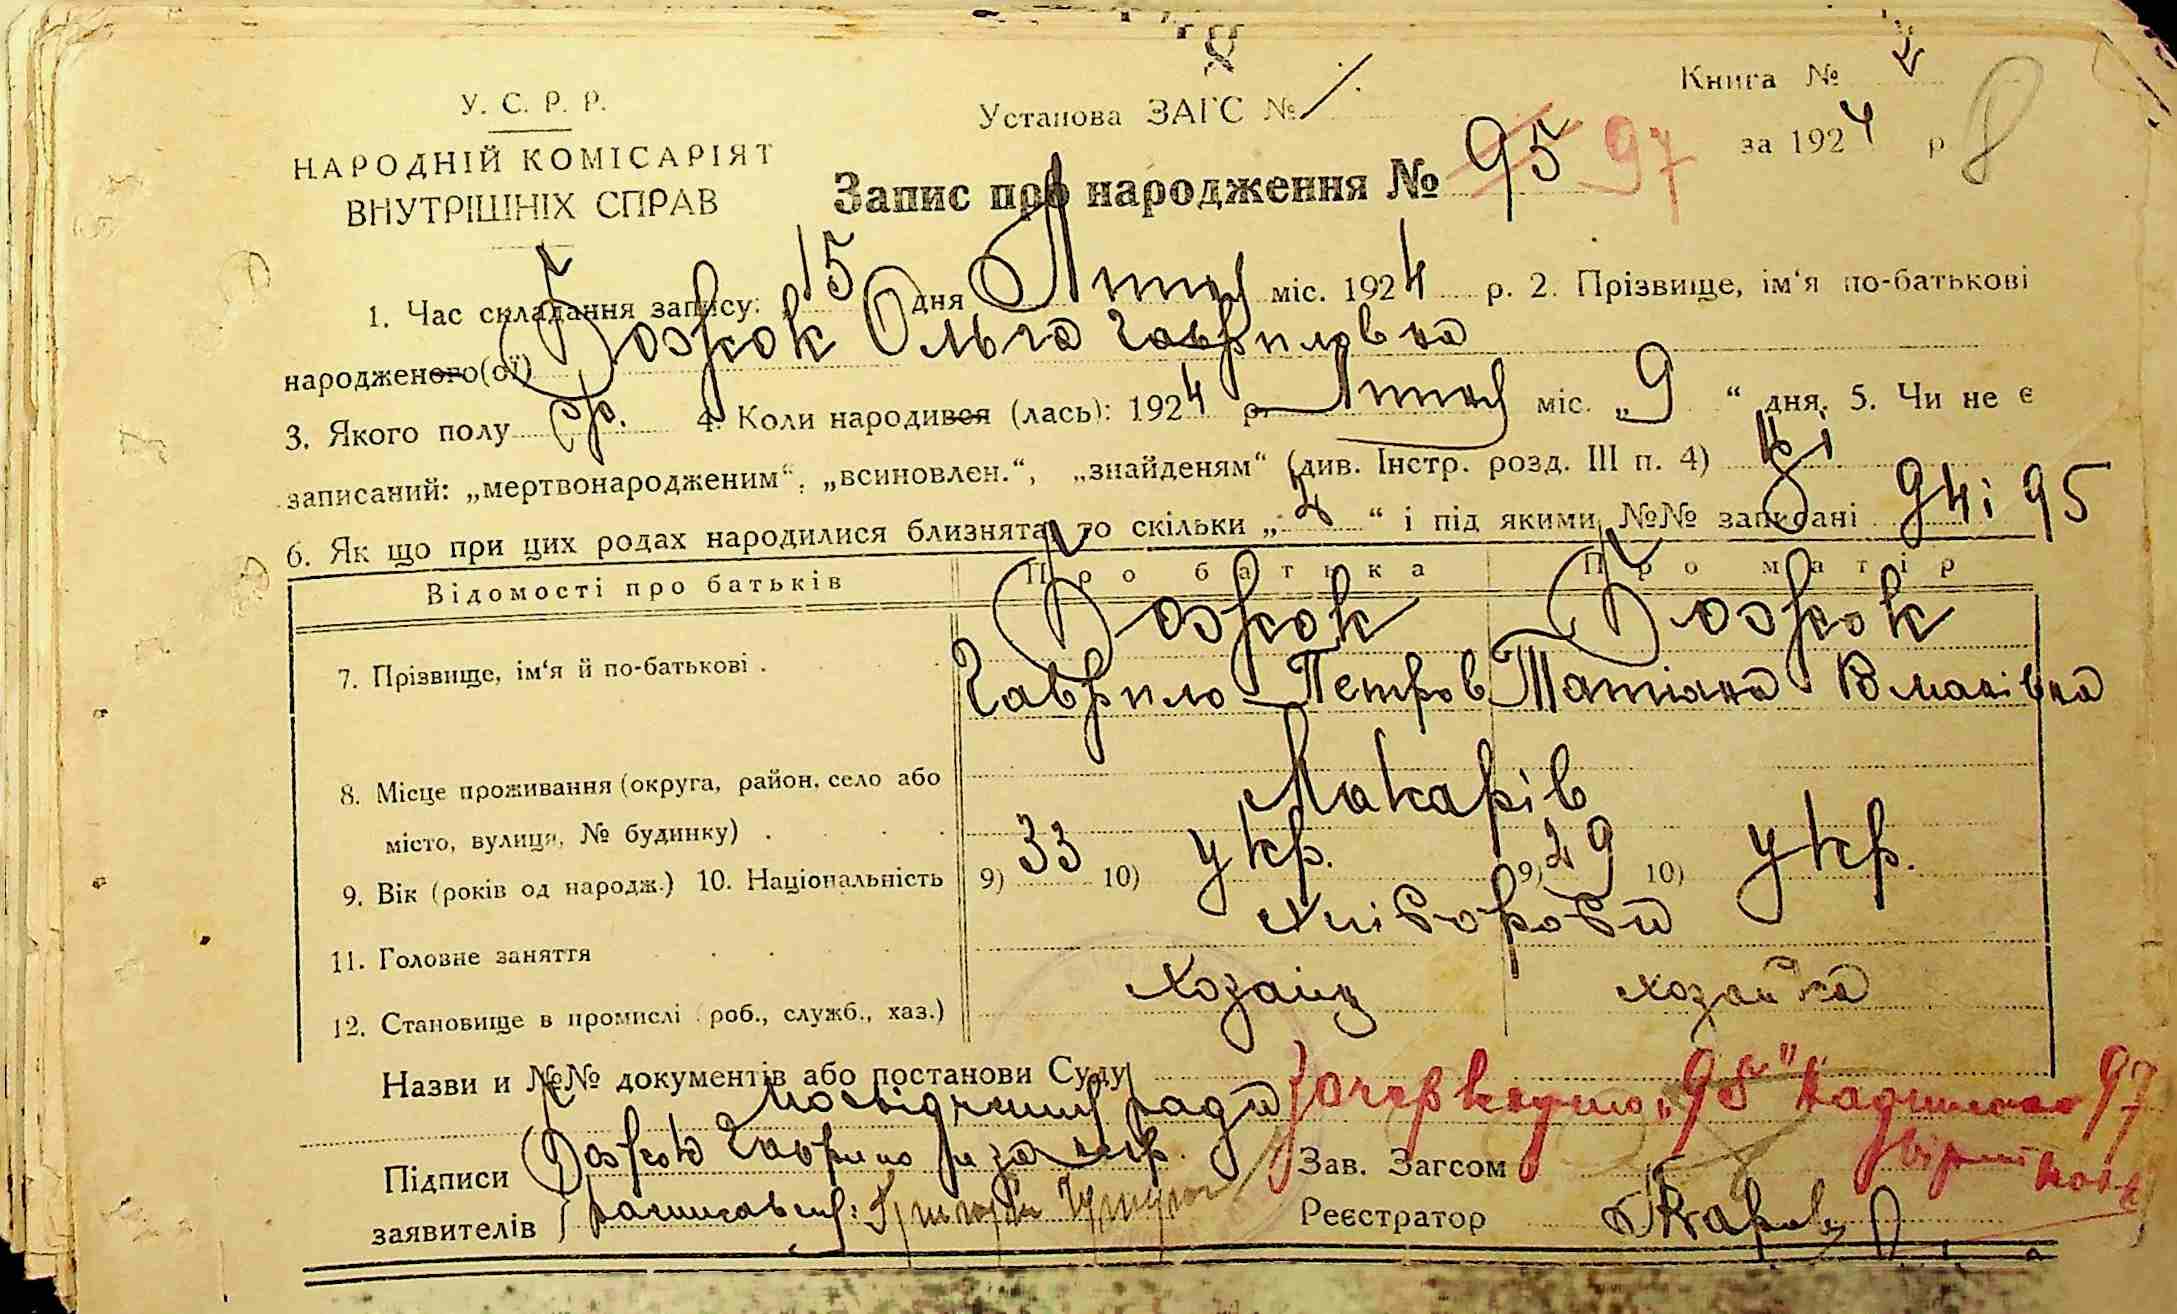 У. С. Р. Р.
НАРОДНІЙ КОМІСАРІЯТ
ВНУТРІШНІХ СПРАВ
Установа ЗАГС № 1.
Книга № 2
за 1924 р 8
Запис про народження № 95 97
1. Час складання запису: „15 дня Лютого міс. 1924 р. 2. Прізвище, ім‘я по-батькові
народженого(ої) Божок Ольга Гавриловна
3. Якого полу ж. 4. Коли народився (лась): 1924 р. Лютого міс. „9 “ дня. 5. Чи не є
записаний: „мертвонародженим“, „всиновлен.“, „знайденям“ (див. Інстр. розд. III п. 4) Ні
6. Як що при цих родах народилися близнята, то скільки „2“ і під якими №№ записані 94 і 95
Відомості про батьків Про батька Про матір
7. Прізвище, ім‘я й по-батькові . Божок Божок
Гаврило Петров Татіяна
8. Місце проживання (округа, район, село або
місто, вулиця, № будинку) . Макарів
9. Вік (років од народж.) 10. Національність 9) 33 10) укр. 9) 29 10) укр.
11. Головне заняття Хлібороби
12. Становище в промислі роб., служб., хаз.) Хозаїн хозайка
Назви и №№ документів або постанови Суду
Посвідчення ради Зачеркнуто „95" Надписано 97
Підписи Божок Гаврило Зав. Загсом вірно
заявителів расписався: Григорій Реєстратор